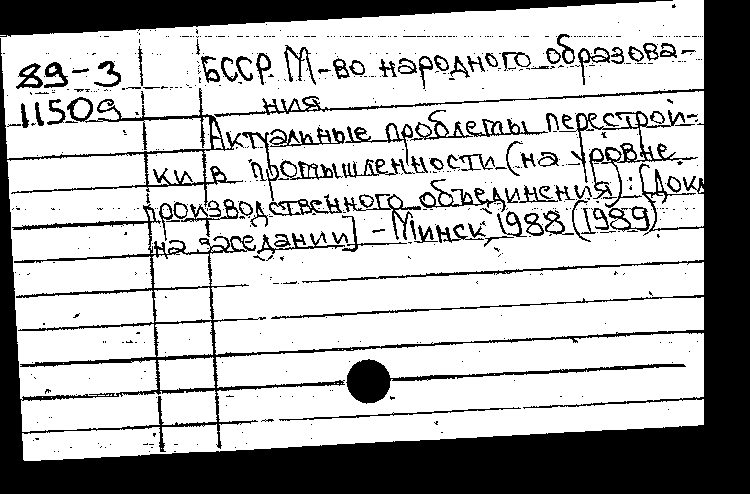 89-3
11509
БССР. М-во народного образова-
ния.
Актуальные проблемы перестрой-
ки в промышленности (на уровне
производственного объединения): [Докл
на заседании] - Минск, 1988 (1989)